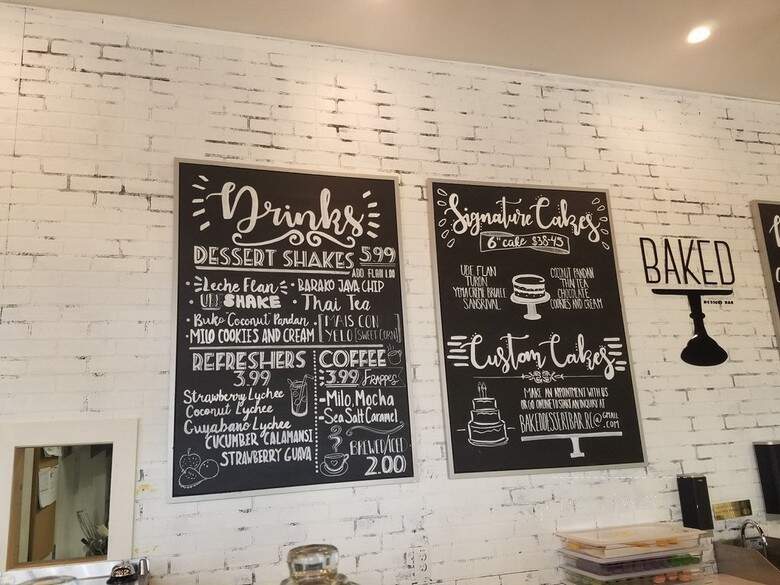 Drinks
DESSERT SHAKES 5.99
ADD FLAN 1.00
Leche Flan
UBE SHAKE
Buko Coconut Pandan
MILO COOKIES AND CREAM
BARAKO JAVA CHIP
Thai Tea
MAIS CON
YELO (SWEET CORN)
REFRESHERS
3.99
Strawberry Lychee
Coconut Lychee
Guyabano Lychee
CUCUMBER CALAMANSI
STRAWBERRY GUAVA
COFFEE
3.99 Frappes
Milo, Mocha
Sea Salt Caramel
BREWED/ICED
2.00
Signature Cakes
6" cake $38-45
UBE FLAN
TURON
YEMA CREME BRULEE
SANSRIVAL
COCONUT PANDAN
THAI TEA
CHOCOLATE
COOKIES AND CREAM
Custom Cakes
MAKE AN APPOINTMENT WITH US
OR GO ONLINE TO START AN INQUIRY AT
BAKEDDESSERTBAR.RC@GMAIL
.COM
BAKED
DESSERT BAR